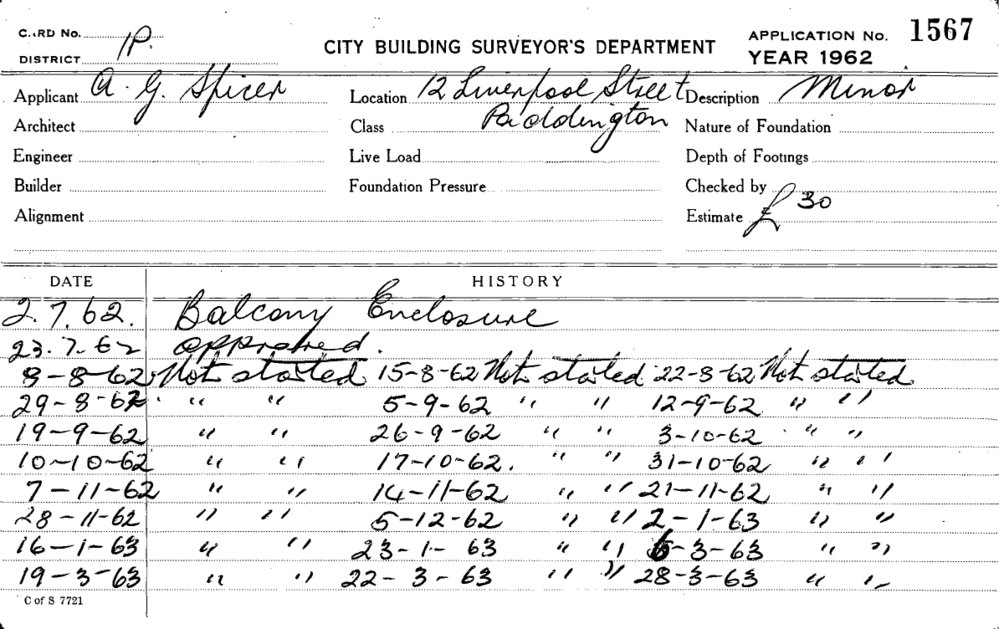 CARD No. CITY BUILDING SURVEYOR'S DEPARTMENT APPLICATION No. 1567
DISTRICT IP. YEAR 1962
Applicant A. G. Spicer Location 12 Liverpool Street Description Minor
Architect Class Paddington Nature of Foundation
Engineer Live Load Depth of Footings
Builder Foundation Pressure Checked by
Alignment Estimate £30
DATE HISTORY
2.7.62. Balcony Enclosure
23.7.62 approved.
8-8-62 Not started 15-8-62 Not started 22-8-62 Not started
29-8-62. " " 5-9-62 " " 12-9-62 " "
19-9-62 " " 26-9-62 " " 3-10-62 " "
10-10-62 " " 17-10-62. " " 31-10-62 " "
7-11-62 " " 14-11-62 " " 21-11-62 " "
28-11-62 " " 5-12-62 " " 2-1-63 " "
16-1-63 " " 23-1-63 " " 6-3-63 " "
19-3-63 " " 22-3-63 " " 28-3-63 " "
C of S 7721